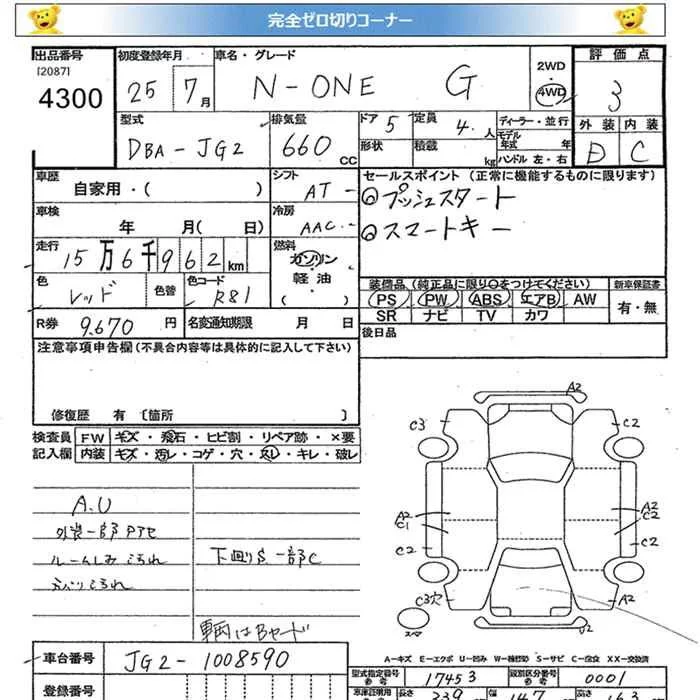 完全ゼロ切りコーナー
出品番号 初度登録年月 車名・グレード 評価点
[2087] 2WD
4300 25 7月 N-ONE G ・ 3
4WD
型式 排気量 ドア 5 定員 4.人 ディーラー・並行 外装 内装
DBA-JG2 660 CC 形状 積載 kg モデル年式 年 D C
ハンドル 左・右
車歴 自家用・( ) シフト AT- セールスポイント(正常に機能するものに限ります)
◎プッシュスタート
車検 年 月( 日) 冷房 AAC.- ◎スマートキー
走行 15万6千962km 燃料 ガソリン
軽油
( )
色 レッド 色替 色コード R81 装備品(純正品に限り○をつけてください) 新車保証書
PS PW ABS エアB AW 有・無
R券 9,670円 名変通知期限 月 日 SR ナビ TV カワ
注意事項申告欄(不具合内容等は具体的に記入して下さい) 後日品
修復歴 有〔箇所 〕
検査員 FW キズ・飛石・ヒビ割・リペア跡・×要
記入欄 内装 キズ・汚レ・コゲ・穴・スレ・キレ・破レ
A2
C3 C2
A2 A2
C1 C2
C2 C2
C3穴 A2
スマ U2
A.U
外装一部アセ
ルームしみよごれ 下回りS 一部C
よごれ
車両はBヤード
車台番号 JG2-1008590
A-キズ E-エクボ U-凹み W-補修跡 S-サビ C-腐食 XX-交換済
型式指定番号 参考 17453 類別区分番号 参考 0001
登録番号 車庫証明用 長さ 339 幅 147 高さ 163